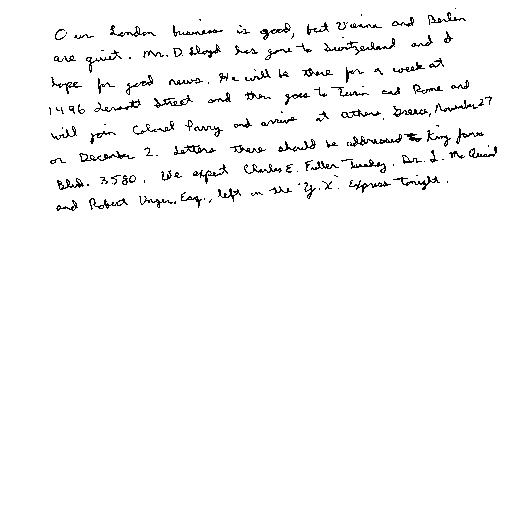 Our London business is good, but Vienna and Berlin
are quiet. Mr. D. Lloyd has gone to Switzerland and I
hope for good news. He will be there for a week at
1496 Zermott Street and then goes to Turin and Rome and
will join Colonel Parry and arrive at Athens, Greece, November 27
or December 2. Letters there should be addressed to King James
Blvd. 3580. We expect Charles E. Fuller Tuesday. Dr. L. McQuaid
and Robert Unger, Esq., left on the "Y.X." Express tonight.